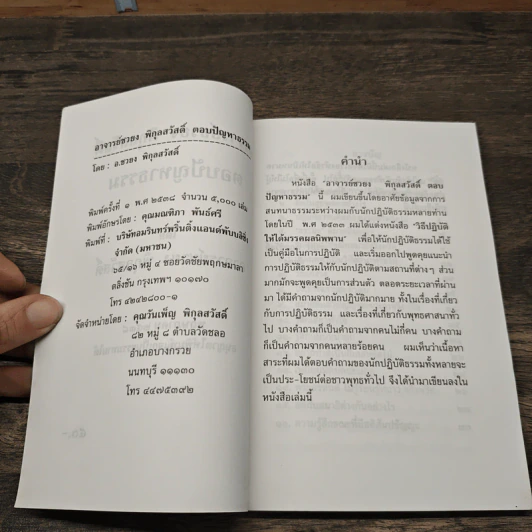 อาจารย์ชวยง พิกุลสวัสดิ์ ตอบปัญหาธรรม
โดย : อ.ชวยง พิกุลสวัสดิ์
พิมพ์ครั้งที่ ๑ พ.ศ ๒๕๓๘ จำนวน ๕,๐๐๐ เล่ม
พิมพ์อักษรโดย : คุณมณฑิภา พันธ์ศรี
พิมพ์ที่ : บริษัทอมรินทร์พริ้นติ้งแอนด์พับบลิชชิ่ง
จำกัด (มหาชน)
๖๕/๑๖ หมู่ ๔ ซอยวัดชัยพฤกษมาลา
ตลิ่งชัน กรุงเทพฯ ๑๐๑๗๐
โทร ๔๒๔๒๘๐๐-๑
จัดจำหน่ายโดย : คุณวันเพ็ญ พิกุลสวัสดิ์
๘๒ หมู่ ๘ ตำบลวัดชลอ
อำเภอบางกรวย
นนทบุรี ๑๑๑๓๐
โทร ๔๔๗๕๓๙๒
คำนำ
หนังสือ "อาจารย์ชวยง พิกุลสวัสดิ์ ตอบ
ปัญหาธรรม" นี้ ผมเขียนขึ้นโดยอาศัยข้อมูลจากการ
สนทนาธรรมระหว่างผมกับนักปฏิบัติธรรมหลายท่าน
โดยในปี พ.ศ ๒๕๓๓ ผมได้แต่งหนังสือ "วิธีปฏิบัติ
ให้ได้มรรคผลนิพพาน" เพื่อให้นักปฏิบัติธรรมได้ใช้
เป็นคู่มือในการปฏิบัติ และเริ่มออกไปพูดคุยแนะนำ
การปฏิบัติธรรมให้กับนักปฏิบัติตามสถานที่ต่างๆ ส่วน
มากมักจะพูดคุยเป็นการส่วนตัว ตลอดระยะเวลาที่ผ่าน
มา ได้มีคำถามจากนักปฏิบัติมากมาย ทั้งในเรื่องที่เกี่ยว
กับการปฏิบัติธรรม และเรื่องที่เกี่ยวกับพุทธศาสนาทั่ว
ไป บางคำถามก็เป็นคำถามจากคนไม่กี่คน บางคำถาม
ก็เป็นคำถามจากคนหลายร้อยคน ผมเห็นว่าเนื้อหา
สาระที่ผมได้ตอบคำถามของนักปฏิบัติธรรมทั้งหลายจะ
เป็นประ-โยชน์ต่อชาวพุทธทั่วไป จึงได้นำมาเขียนลงใน
หนังสือเล่มนี้